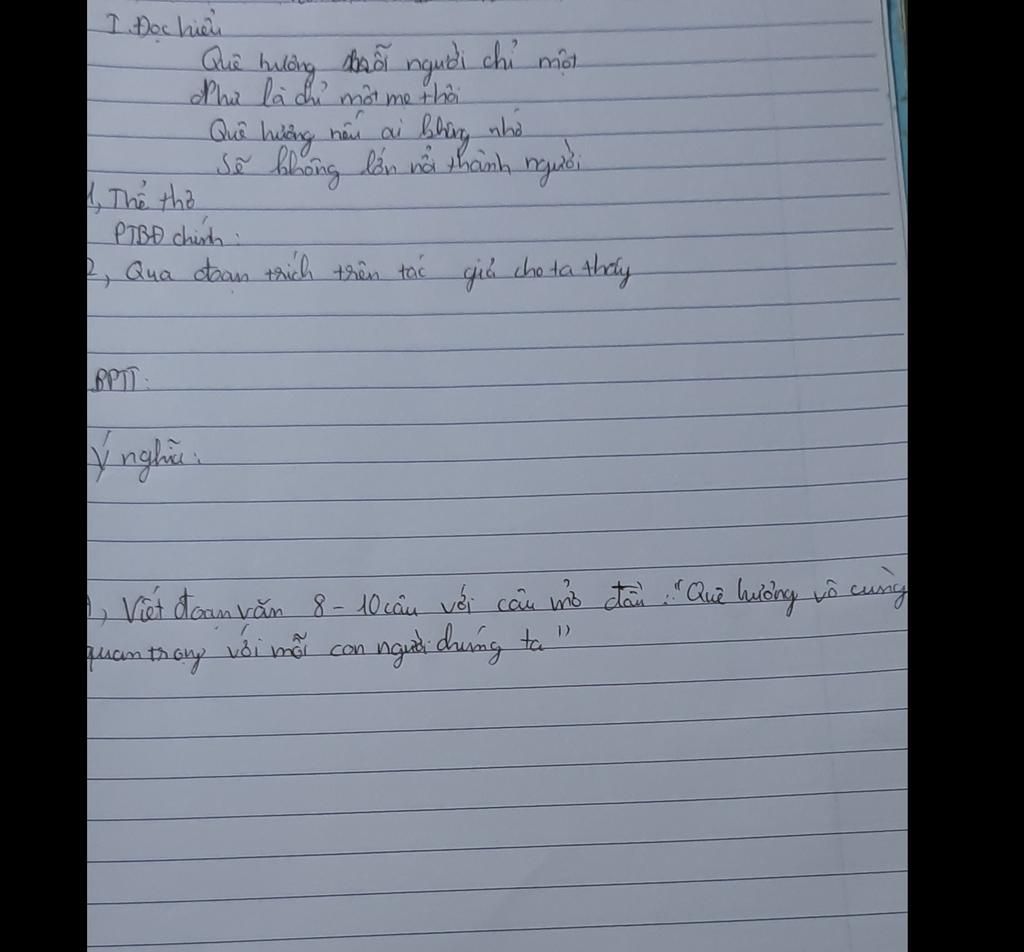 I. Đọc hiểu
Quê hương mỗi người chỉ một
Như là chỉ một mẹ thôi
Quê hương nếu ai không nhớ
Sẽ không lớn nổi thành người
1, Thể thơ
PTBĐ chính:
2, Qua đoạn trích trên tác giả cho ta thấy
BPTT:
Ý nghĩa:
, Viết đoạn văn 8-10 câu với câu mở đầu: "Quê hương vô cùng
quan trọng với mỗi con người chúng ta"